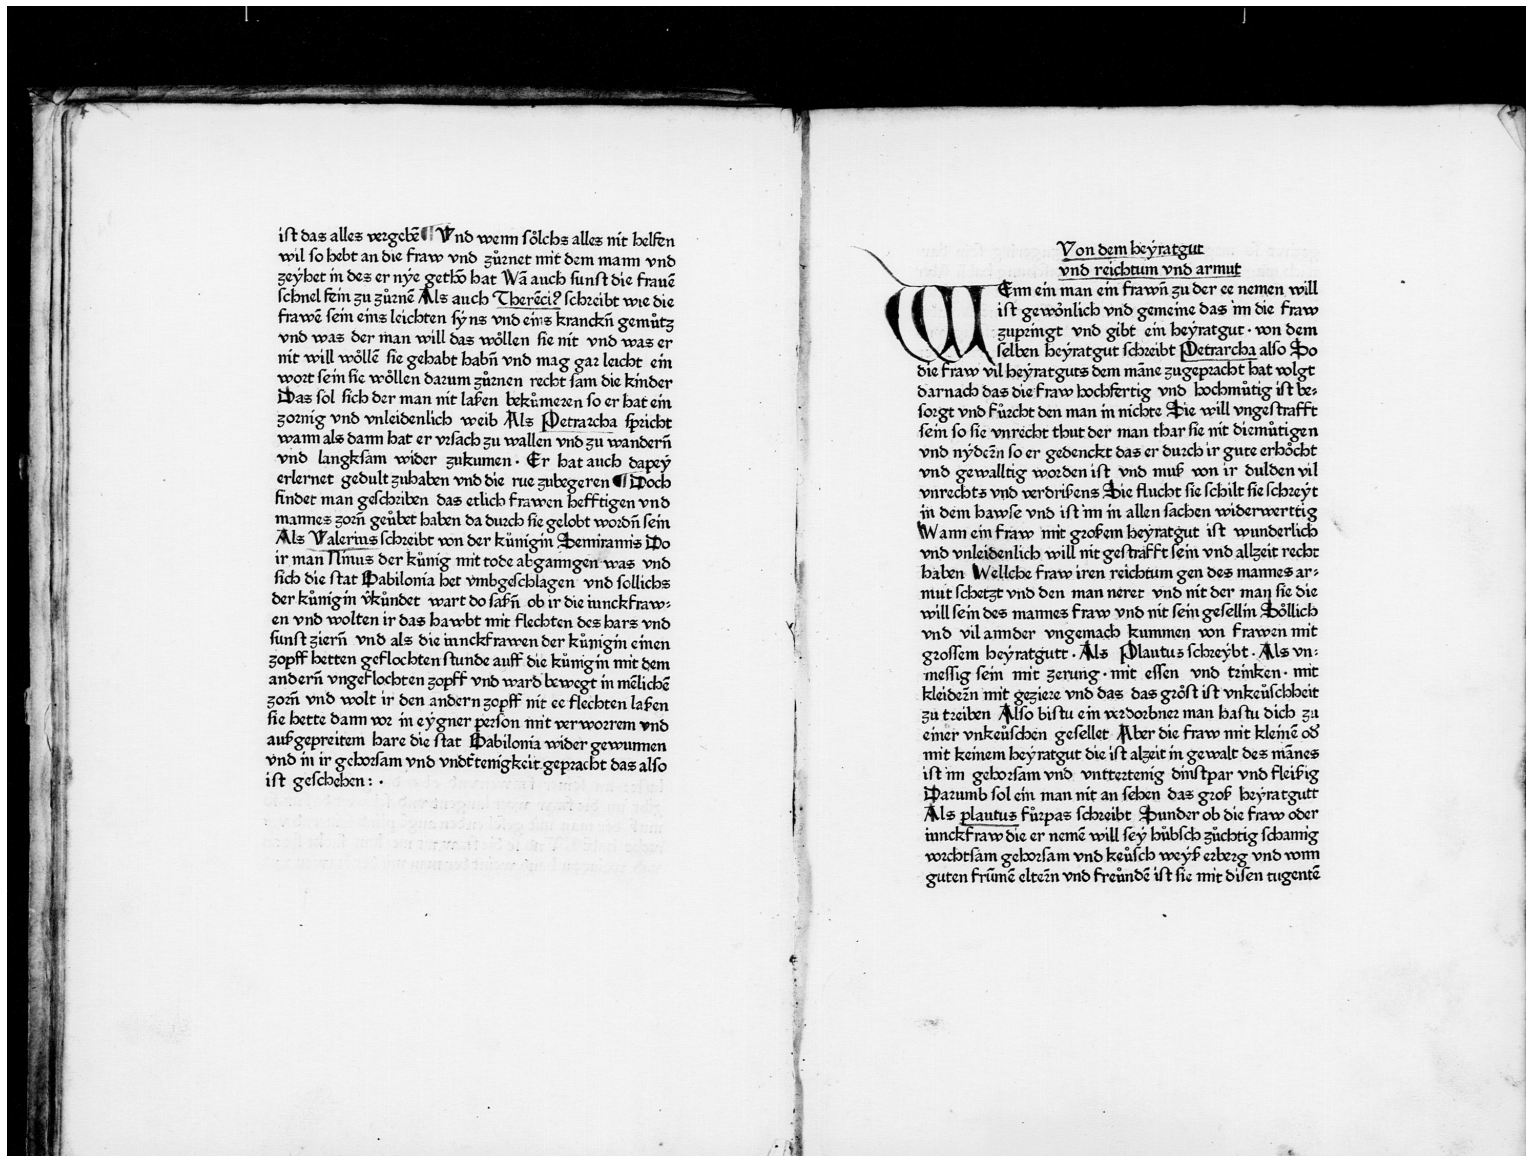 ist das alles vergebē ¶ Vnd wenn sölchs alles nit helfen
wil so hebt an die fraw vnd zu̇rnet mit dem mann vnd
zeyhet in des er nye gethō hat Wā auch sunst die frauē
schnel sein zu zu̇rnē Als auch Therēciꝰ schreibt wie die
frawē sein eins leichten syns vnd eins kranckn̄ gemu̇tz
vnd was der man will das wöllen sie nit vnd was er
nit will wöllē sie gehabt habn̄ vnd mag gar leicht ein
wort sein sie wöllen darum zu̇rnen recht sam die kinder
Das sol sich der man nit laßen beku̇meren so er hat ein
zornig vnd vnleidenlich weib Als Petrarcha spricht
wann als dann hat er vrsach zu wallen vnd zu wandern̄
vnd langksam wider zukumen · Er hat auch dapey
erlernet gedult zuhaben vnd die rue zubegeren ¶ Doch
findet man geschriben das etlich frawen hefftigen vnd
mannes zorn̄ geu̇bet haben da durch sie gelobt wordn̄ sein
Als Valerius schreibt von der ku̇nigin Semiramis Do
ir man Ninus der ku̇nig mit tode abganngen was vnd
sich die stat Babilonia het vmbgeschlagen vnd sollichs
der ku̇nigin v̄ku̇ndet wart do saßn̄ ob ir die iunckfraw⸗
en vnd wolten ir das hawbt mit flechten des hars vnd
sunst ziern̄ vnd als die iunckfrawen der ku̇nigin einen
zopff hetten geflochten stunde auff die ku̇nigin mit dem
andern̄ vngeflochten zopff vnd ward bewegt in mēlichē
zorn̄ vnd wolt ir den andern zopff nit ee flechten laßen
sie hette dann vor in eygner person mit verworrem vnd
außgepreitem hare die stat Babilonia wider gewunnen
vnd in ir gehorsam vnd vndt̄tenigkeit gepracht das also
ist geschehen : ·
Von dem heyratgut
vnd reichtum vnd armut
WEnn ein man ein frawn̄ zu der ee nemen will
ist gewönlich vnd gemeine das im die fraw
zupringt vnd gibt ein heyratgut · von dem
selben heyratgut schreibt Petrarcha also So
die fraw vil heyratguts dem māne zugepracht hat volgt
darnach das die fraw hochfertig vnd hochmu̇tig ist be⸗
sorgt vnd fu̇rcht den man in nichte Sie will vngestrafft
sein so sie vnrecht thut der man thar sie nit diemu̇tigen
vnd nydern so er gedenckt das er durch ir gute erhöcht
vnd gewalltig worden ist vnd muß von ir dulden vil
vnrechts vnd verdrißens Sie flucht sie schilt sie schreyt
in dem hawse vnd ist im in allen sachen widerwerttig
Wann ein fraw mit großem heyratgut ist wunderlich
vnd vnleidenlich will nit gestrafft sein vnd allzeit recht
haben Wellche fraw iren reichtum gen des mannes ar⸗
mut schetzt vnd den man neret vnd nit der man sie die
will sein des mannes fraw vnd nit sein gesellin Söllich
vnd vil annder vngemach kummen von frawen mit
grossem heyratgutt · Als Plautus schreybt · Als vn⸗
messig sein mit zerung · mit essen vnd trinken · mit
kleidern mit geziere vnd das das gröst ist vnkeu̇schheit
zu treiben Also bistu ein verdorbner man hastu dich zu
einer vnkeu̇schen gesellet Aber die fraw mit kleinē od̄
mit keinem heyratgut die ist alzeit in gewalt des mānes
ist im gehorsam vnd vnttertenig dinstpar vnd fleißig
Darumb sol ein man nit an sehen das groß heyratgutt
Als plautus fu̇rpas schreibt Sunder ob die fraw oder
iunckfraw die er nemē will sey hu̇bsch zu̇chtig schamig
vorchtsam gehorsam vnd keu̇sch weyß erberg vnd vonn
guten fru̇mē eltern vnd freu̇ndē ist sie mit disen tugentē